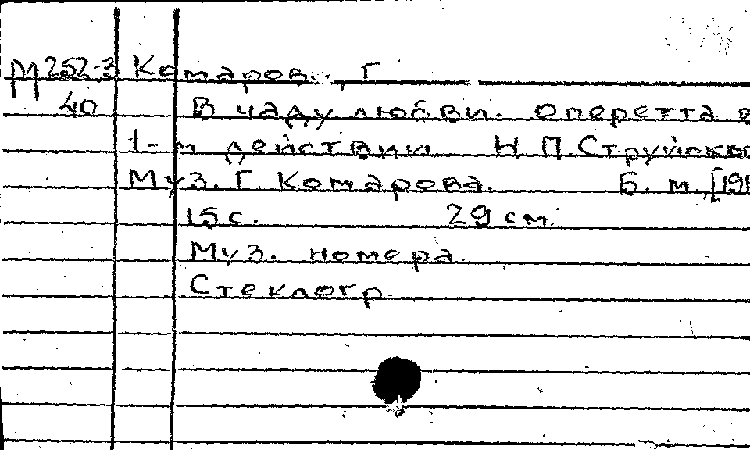 М 252-3 Комаров, Г
40 В чаду любви. Оперетта в
1-м действии Н.П.Струйско
Муз. Г. Комарова. Б. м., [191
15 с. 29 см
Муз. номера
Стеклогр.